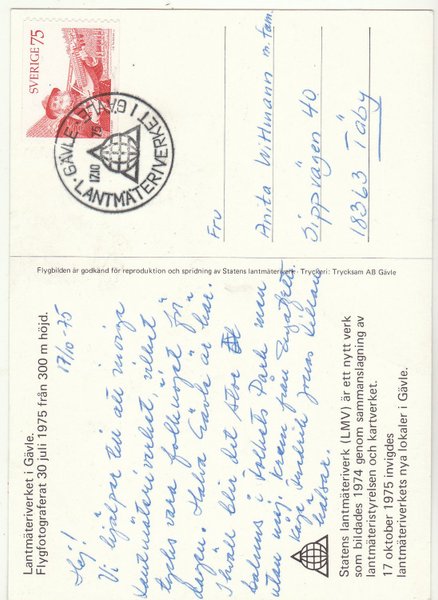 SVERIGE 75
GÄVLE
LANTMÄTERIVERKET I GÄVLE
1710 75
Fru
Anita Wittmann m. fam.
Sippvägen 40
18363 Täby
Flygbilden är godkänd för reproduktion och spridning av Statens lantmäteriverk. Tryckeri: Trycksam AB Gävle
Lantmäteriverket i Gävle.
Flygfotograferat 30 juli 1975 från 300 m höjd.
17/10 -75
Hej!
Vi hjälper till att inviga
Lantmäteriverket, vilket
tycks vara folknöjet för
dagen. Halva Gävle är här.
I kväll blir det stor
baluns i Folkets Park men
utan mig. Kram från
Kaje Fredrik Jonas
hälsar.
Statens lantmäteriverk (LMV) är ett nytt verk
som bildades 1974 genom sammanslagning av
lantmäteristyrelsen och kartverket.
17 oktober 1975 invigdes
lantmäteriverkets nya lokaler i Gävle.